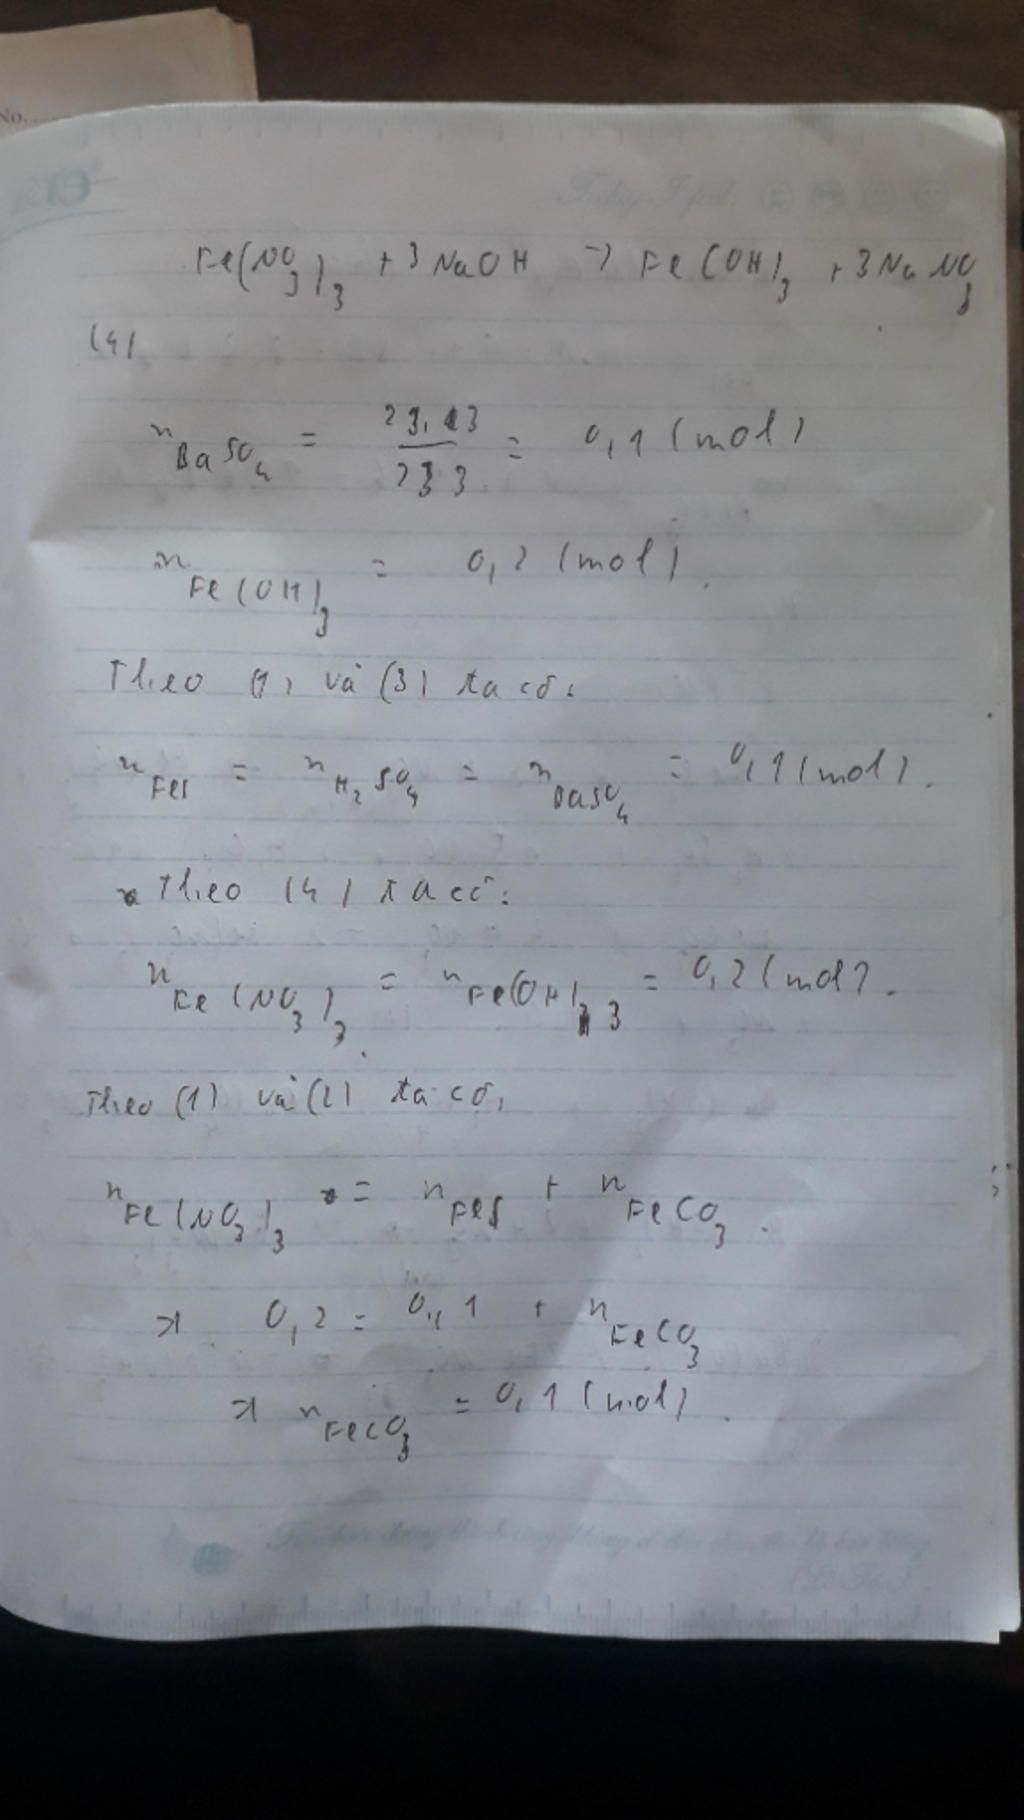 No.
Today I feel:
Fe(NO3)3 + 3NaOH → Fe(OH)3 + 3NaNO3
(4)
nBaSO4 = 23,3/233 = 0,1 (mol)
nFe(OH)3 = 0,2 (mol).
Theo (1) và (3) ta có:
nFeS = nH2SO4 = nBaSO4 = 0,1 (mol).
Theo (4) ta có:
nFe(NO3)3 = nFe(OH)3 = 0,2 (mol).
Theo (1) và (2) ta có,
nFe(NO3)3 = nFeS + nFeCO3.
=> 0,2 = 0,1 + nFeCO3
=> nFeCO3 = 0,1 (mol).